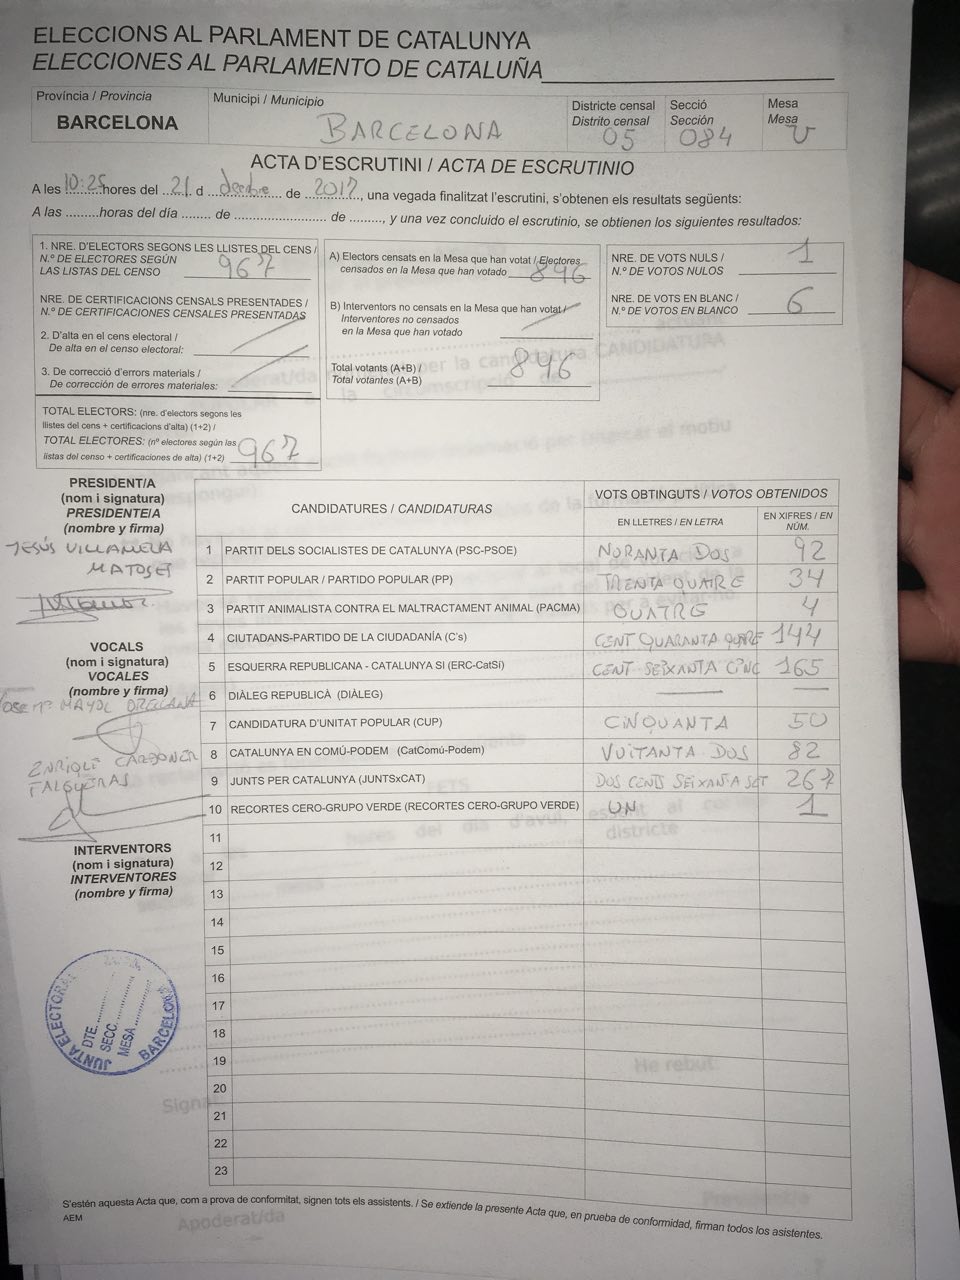 ELECCIONS AL PARLAMENT DE CATALUNYA
ELECCIONES AL PARLAMENTO DE CATALUÑA
Província / Provincia
BARCELONA
Municipi / Municipio
BARCELONA
Districte censal
Distrito censal
05
Secció
Sección
084
Mesa
Mesa
U
ACTA D'ESCRUTINI / ACTA DE ESCRUTINIO
A les 10:25 hores del 21 d desembre de 2017, una vegada finalitzat l'escrutini, s'obtenen els resultats següents:
A las .........horas del día ........ de ........................ de ........, y una vez concluido el escrutinio, se obtienen los siguientes resultados:
1. NRE. D'ELECTORS SEGONS LES LLISTES DEL CENS /
N.º DE ELECTORES SEGÚN
LAS LISTAS DEL CENSO 967
NRE. DE CERTIFICACIONS CENSALS PRESENTADES /
N.º DE CERTIFICACIONES CENSALES PRESENTADAS
2. D'alta en el cens electoral /
De alta en el censo electoral:
3. De correcció d'errors materials /
De corrección de errores materiales:
TOTAL ELECTORS: (nre. d'electors segons les
llistes del cens + certificacions d'alta) (1+2) /
TOTAL ELECTORES: (nº electores según las
listas del censo + certificaciones de alta) (1+2) 967
A) Electors censats en la Mesa que han votat / Electores
censados en la Mesa que han votado 846
B) Interventors no censats en la Mesa que han votat /
Interventores no censados
en la Mesa que han votado
Total votants (A+B) /
Total votantes (A+B) 846
NRE. DE VOTS NULS /
N.º DE VOTOS NULOS 1
NRE. DE VOTS EN BLANC /
N.º DE VOTOS EN BLANCO 6
PRESIDENT/A
(nom i signatura)
PRESIDENTE/A
(nombre y firma)
JESÚS VILLANUEVA
MATOSES
VOCALS
(nom i signatura)
VOCALES
(nombre y firma)
JOSE Mª MAYOL ORELLANA
ENRIQUE CARDONER
FALGUERAS
INTERVENTORS
(nom i signatura)
INTERVENTORES
(nombre y firma)
JUNTA ELECTORAL
BARCELONA
DTE.
SECC.
MESA
CANDIDATURES / CANDIDATURAS
VOTS OBTINGUTS / VOTOS OBTENIDOS
EN LLETRES / EN LETRA
EN XIFRES / EN NÚM.
1 PARTIT DELS SOCIALISTES DE CATALUNYA (PSC-PSOE) NORANTA DOS 92
2 PARTIT POPULAR / PARTIDO POPULAR (PP) TRENTA QUATRE 34
3 PARTIT ANIMALISTA CONTRA EL MALTRACTAMENT ANIMAL (PACMA) QUATRE 4
4 CIUTADANS-PARTIDO DE LA CIUDADANÍA (C's) CENT QUARANTA QUATRE 144
5 ESQUERRA REPUBLICANA - CATALUNYA SI (ERC-CatSí) CENT SEIXANTA CINC 165
6 DIÀLEG REPUBLICÀ (DIÀLEG)
7 CANDIDATURA D'UNITAT POPULAR (CUP) CINQUANTA 50
8 CATALUNYA EN COMÚ-PODEM (CatComú-Podem) VUITANTA DOS 82
9 JUNTS PER CATALUNYA (JUNTSxCAT) DOS CENTS SEIXANTA SET 267
10 RECORTES CERO-GRUPO VERDE (RECORTES CERO-GRUPO VERDE) UN 1
11
12
13
14
15
16
17
18
19
20
21
22
23
S'estén aquesta Acta que, com a prova de conformitat, signen tots els assistents. / Se extiende la presente Acta que, en prueba de conformidad, firman todos los asistentes.
AEM